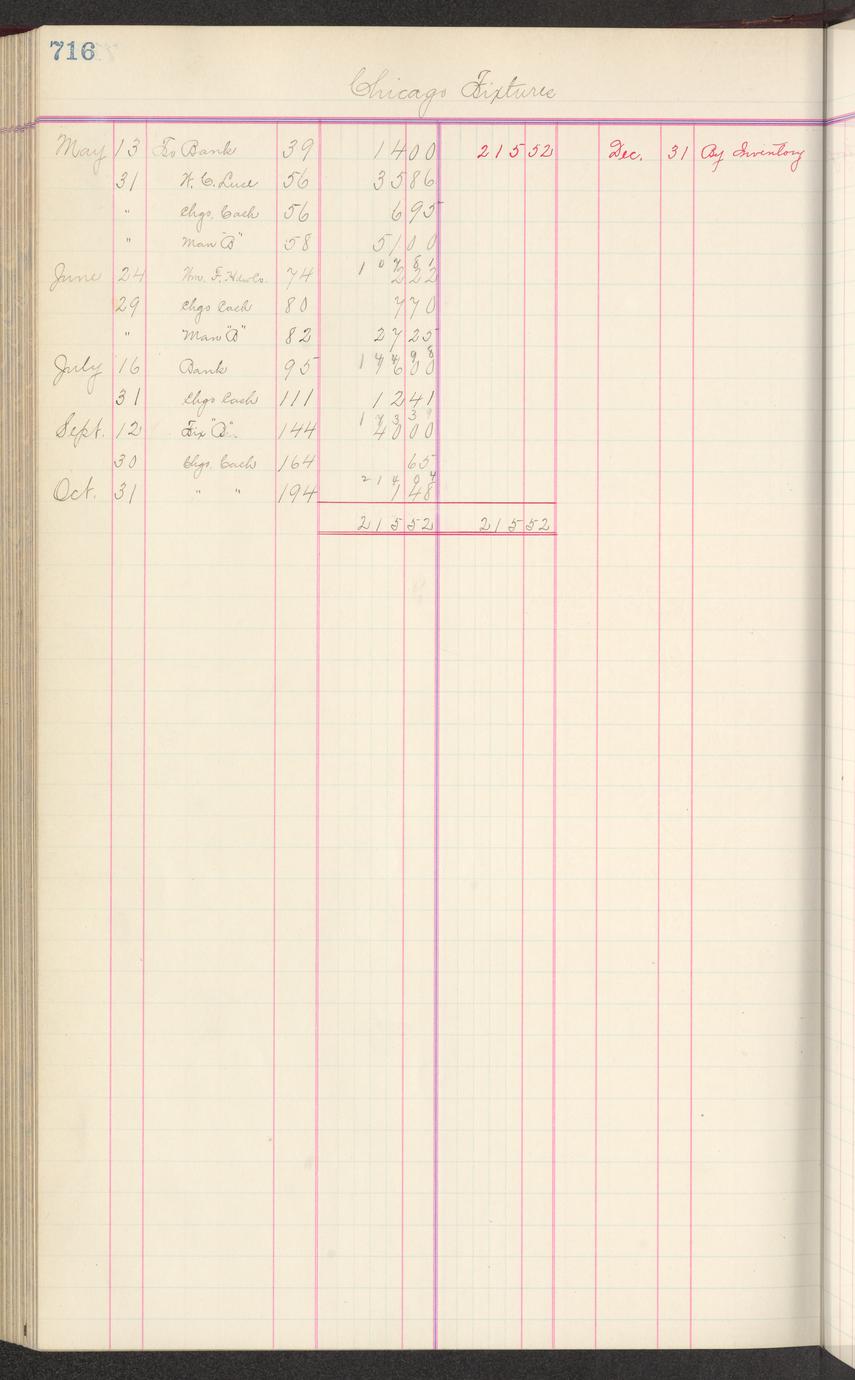 716
Chicago Fixtures
May 13 To Bank 39 14 00 215 52 Dec. 31 By Inventory
31 H. C. Luce 56 35 86
" Chgs. Cash 56 6 95
" Man "B" 58 51 00
107 81
June 24 Wm. F. 74 2 22
29 Chgs Cash 80 7 70
" Man "B" 82 27 25
144 98
July 16 Bank 95 16 00
31 Chgs Cash 111 12 41
173 39
Sept. 12 Fix "B". 144 40 00
30 Chgs. Cash 164 65
214 04
Oct. 31 " " 194 1 48
215 52 215 52